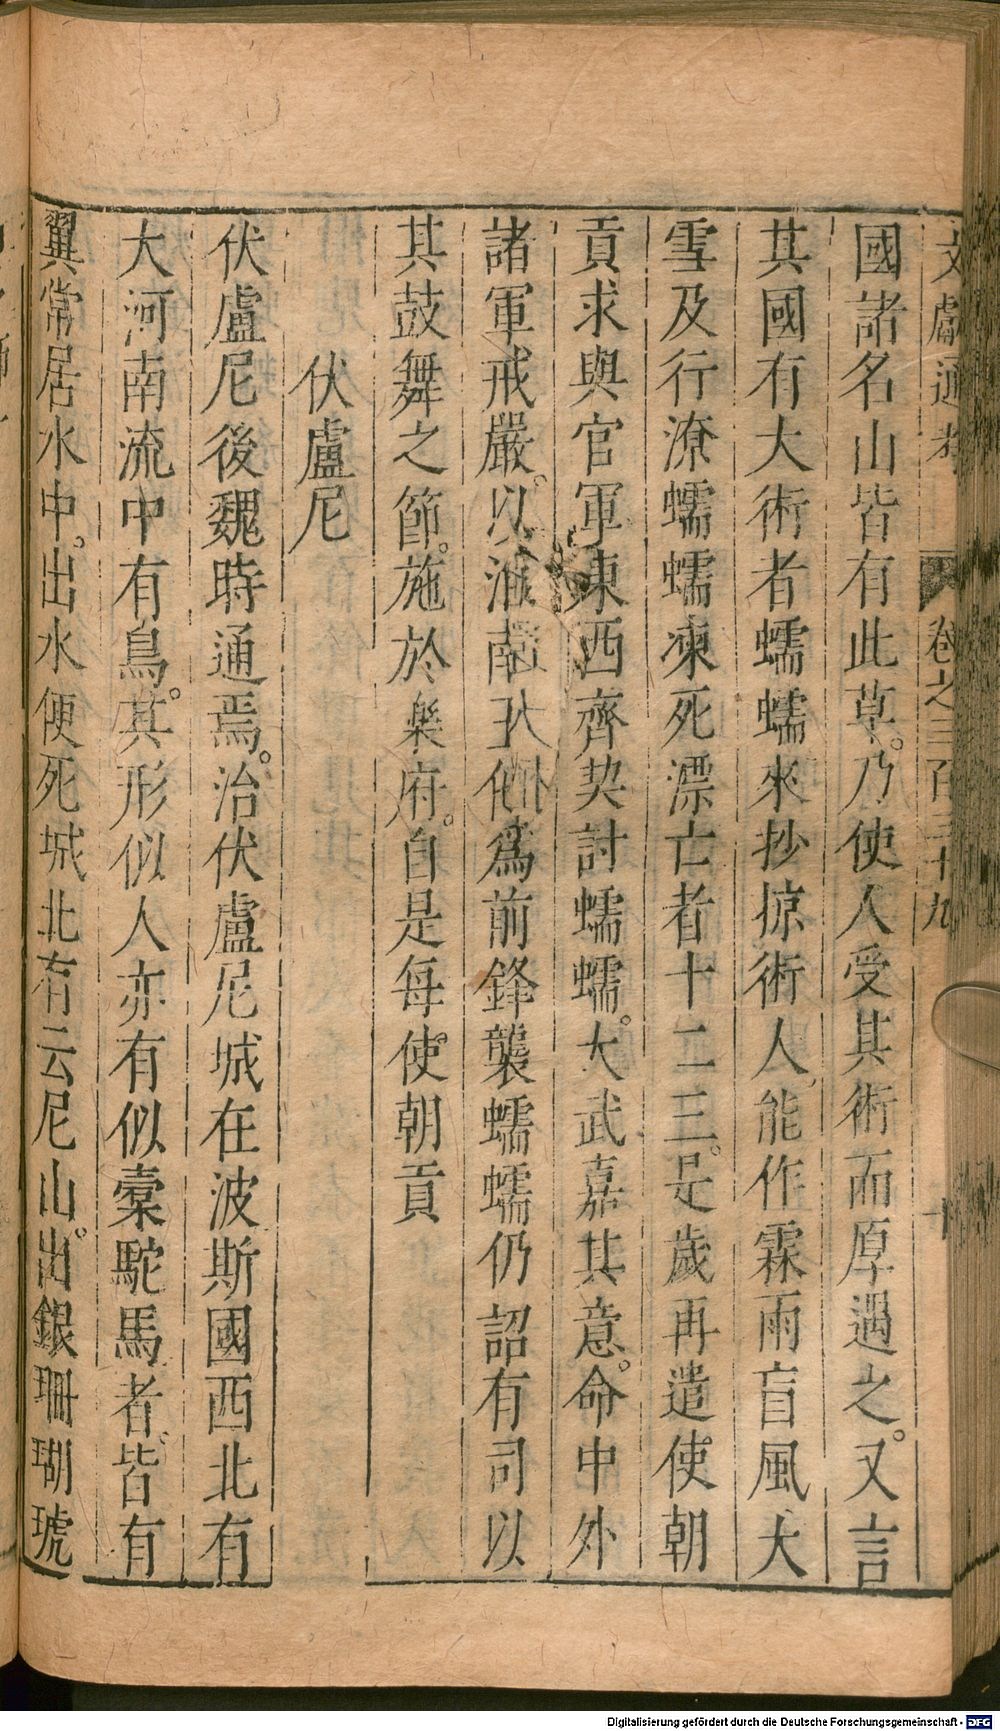 文獻通考 卷之三百三十九 十
國諸名山皆有此草。乃使人受其術而厚遇之。又言
其國有大術者蠕蠕來抄掠術人能作霖雨盲風大
雪及行潦蠕蠕凍死漂亡者十二三。是歲再遣使朝
貢求與官軍東西齊契討蠕蠕。大武嘉其意。命中外
諸軍戒嚴。以淮南王他爲前鋒襲蠕蠕仍詔有司以
其鼓舞之節。施於樂府。自是每使朝貢
伏盧尼
伏盧尼後魏時通焉。治伏盧尼城在波斯國西北有
大河南流中有鳥。其形似人亦有似槖駝馬者皆有
翼常居水中。出水便死城北有云尼山。出銀珊瑚琥
Digitalisierung gefördert durch die Deutsche Forschungsgemeinschaft - DFG